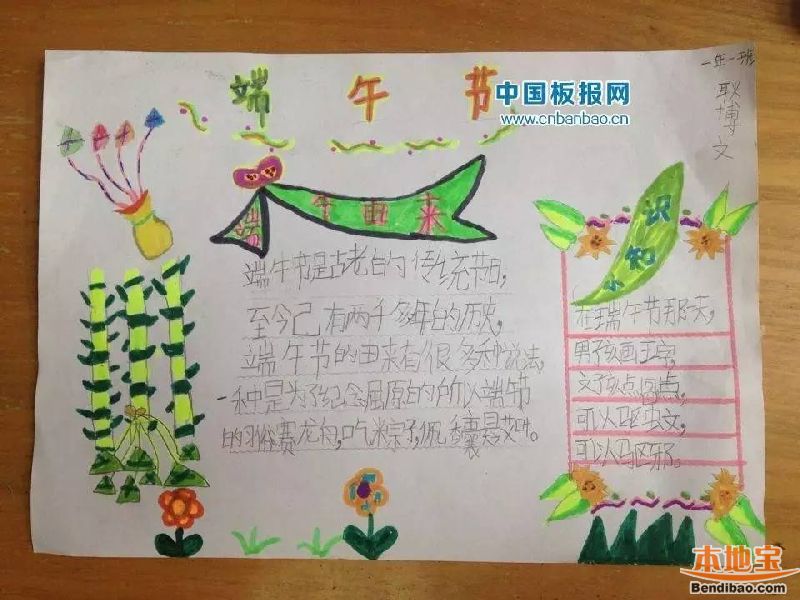 端午节
中国板报网
www.cnbanbao.cn
一年一班
耿博文
端午由来
端午节是古老的传统节日,
至今已有两千多年的历史,
端午节的由来有很多种说法,
一种是为了纪念屈原的所以端午节
的习俗赛龙舟,吃米粽子,佩香囊悬艾叶。
小知识
在端午节那天,
男孩画王字,
女孩点眉点,
可以驱虫文,
可以驱邪。
本地宝
Bendibao.com